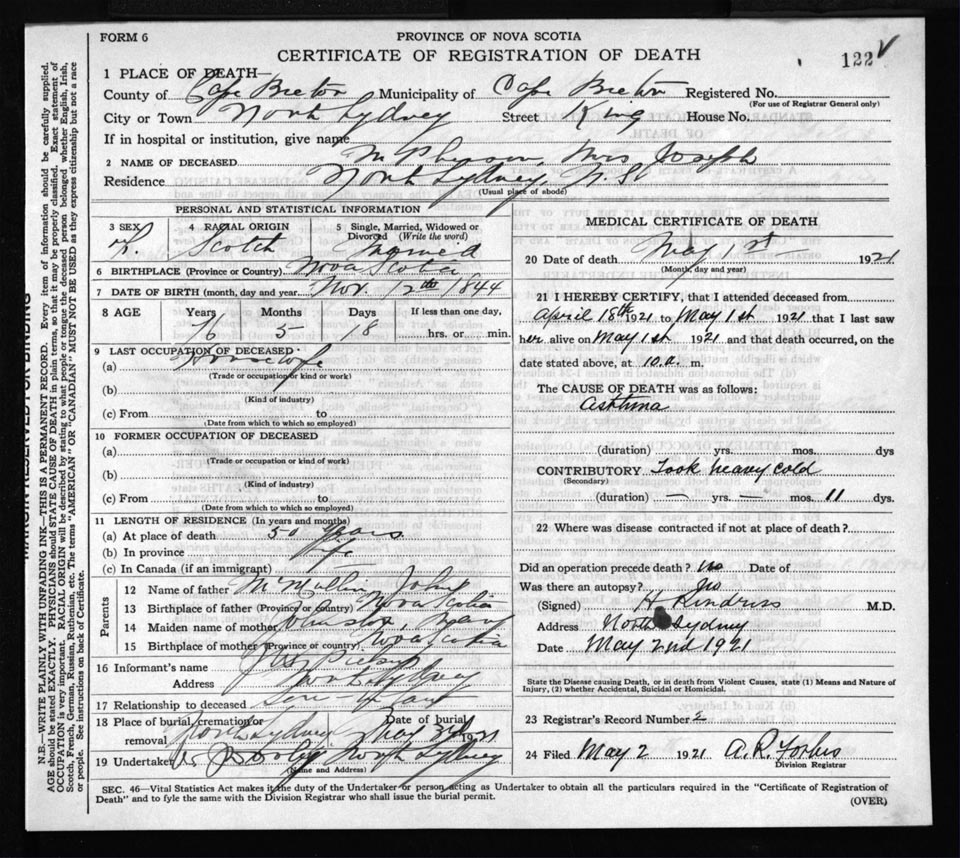 FORM 6
PROVINCE OF NOVA SCOTIA
CERTIFICATE OF REGISTRATION OF DEATH
122
1 PLACE OF DEATH—
County of Cape Breton Municipality of Cape Breton Registered No.
(For use of Registrar General only)
City or Town North Sydney Street King House No.
If in hospital or institution, give name
2 NAME OF DECEASED McPherson, Mrs Joseph
Residence North Sydney, N.S.
(Usual place of abode)
PERSONAL AND STATISTICAL INFORMATION
3 SEX F. 4 RACIAL ORIGIN Scotch 5 Single, Married, Widowed or Divorced (Write the word) Married
6 BIRTHPLACE (Province or Country) Nova Scotia
7 DATE OF BIRTH (month, day and year) Nov. 12th 1844
8 AGE Years Months Days If less than one day,
76 5 18 hrs. or min.
9 LAST OCCUPATION OF DECEASED
(a) Housewife
(Trade or occupation or kind or work)
(b)
(Kind of industry)
(c) From to
(Date from which to which so employed)
10 FORMER OCCUPATION OF DECEASED
(a)
(Trade or occupation or kind of work)
(b)
(Kind of industry)
(c) From to
(Date from which to which so employed)
11 LENGTH OF RESIDENCE (In years and months)
(a) At place of death 50 years
(b) In province life
(c) In Canada (if an immigrant)
Parents
12 Name of father McMullin, John
13 Birthplace of father (Province or country) Nova Scotia
14 Maiden name of mother Johnston, Mary
15 Birthplace of mother (Province or country) Nova Scotia
16 Informant's name
Address North Sydney
17 Relationship to deceased
18 Place of burial, cremation or removal North Sydney Date of burial May 3rd 1921
19 Undertaker North Sydney
(Name and Address)
MEDICAL CERTIFICATE OF DEATH
20 Date of death May 1st 1921
(Month, day and year)
21 I HEREBY CERTIFY, that I attended deceased from
April 18th 1921 to May 1st 1921 that I last saw
her alive on May 1st 1921 and that death occurred, on the
date stated above, at 10 a. m.
The CAUSE OF DEATH was as follows:
Asthma
(duration) yrs. mos. dys
CONTRIBUTORY Took heavy cold
(Secondary)
(duration) — yrs. — mos. 11 dys.
22 Where was disease contracted if not at place of death?
Did an operation precede death? no Date of
Was there an autopsy? no
(Signed) M.D.
Address North Sydney
Date May 2nd 1921
State the Disease causing Death, or in death from Violent Causes, state (1) Means and Nature of
Injury, (2) whether Accidental, Suicidal or Homicidal.
23 Registrar's Record Number 2
24 Filed May 2 1921 A. R. Forbes
Division Registrar
SEC. 46—Vital Statistics Act makes it the duty of the Undertaker or person acting as Undertaker to obtain all the particulars required in the "Certificate of Registration of
Death" and to fyle the same with the Division Registrar who shall issue the burial permit.
(OVER)
MARGIN RESERVED FOR BINDING
N.B.—WRITE PLAINLY WITH UNFADING INK—THIS IS A PERMANENT RECORD. Every item of information should be carefully supplied.
AGE should be stated EXACTLY. PHYSICIANS should STATE CAUSE OF DEATH in plain terms, so that it may be properly classified. Exact statement of
OCCUPATION is very important. RACIAL ORIGIN will be described by stating to what people or tongue the deceased person belonged whether English, Irish,
Scotch, French, German, Russian, Ruthenian, etc. The terms "AMERICAN" OR "CANADIAN" MUST NOT BE USED as they express citizenship but not a race
or people. See instructions on back of Certificate.